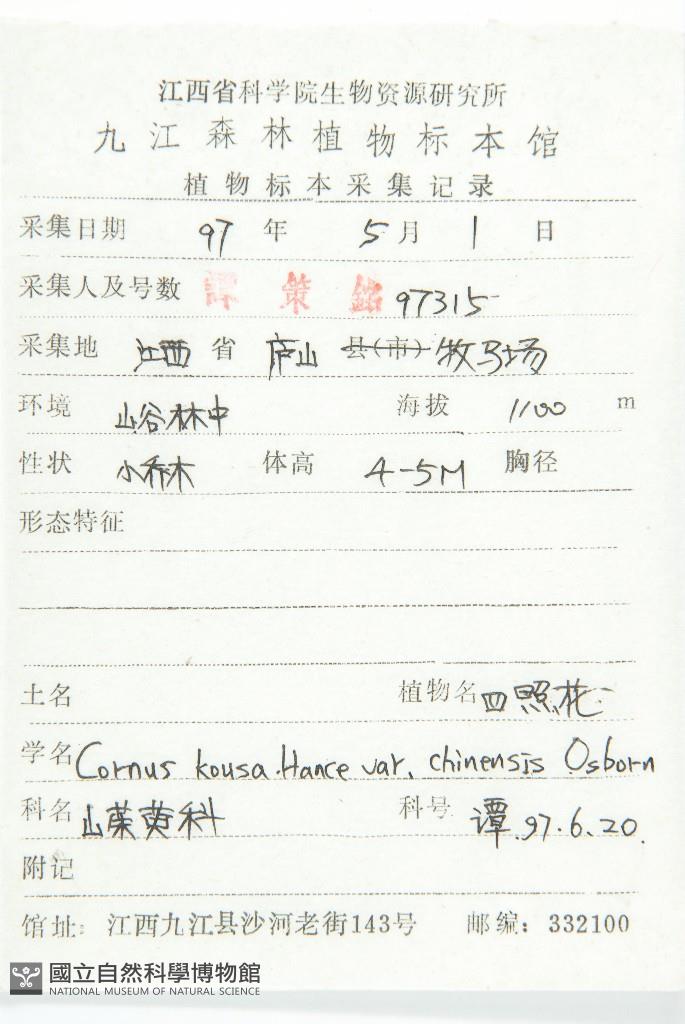 江西省科学院生物资源研究所
九江森林植物标本馆
植物标本采集记录
采集日期 97 年 5 月 1 日
采集人及号数 譚策銘 97315
采集地 江西 省 庐山 县(市) 牧马场
环境 山谷林中 海拔 1100 m
性状 小乔木 体高 4-5M 胸径
形态特征
土名 植物名 四照花
学名 Cornus kousa Hance var. chinensis Osborn
科名 山茱萸科 科号 谭.97.6.20.
附记
馆址: 江西九江县沙河老街143号 邮编: 332100
國立自然科學博物館
NATIONAL MUSEUM OF NATURAL SCIENCE